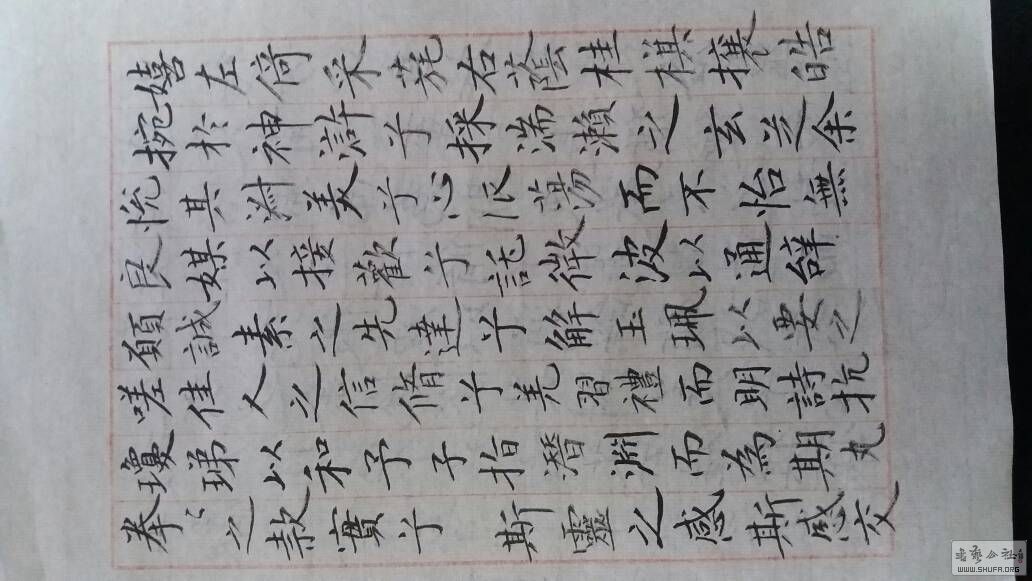 嬉左倚采旄右蔭桂棋攘皓
捥於神滸兮採湍瀨之玄芝余
悅其淑美兮心蕩而不怡無
良媒以接歡兮託微波以通辭
願誠素之先達兮解玉珮以要之
嗟佳人之信脩兮羌習禮而明詩抗
瓊珶以和予兮指潛淵而為期丸
拳々之款實兮斯靈之感斯感交
WWW.SHUFA.ORG